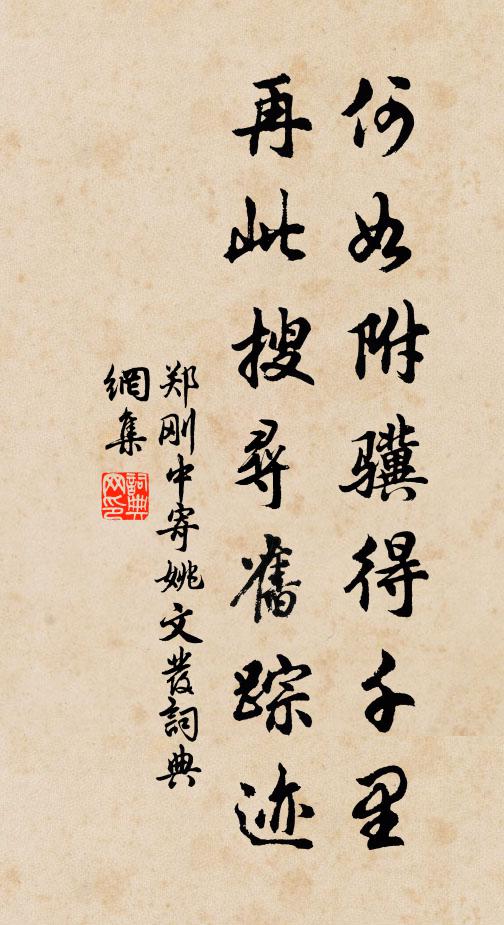 何如附骥得千里
再此搜尋舊踪迹
郑刚中寄姚文發詞典
網集
詞典
网印